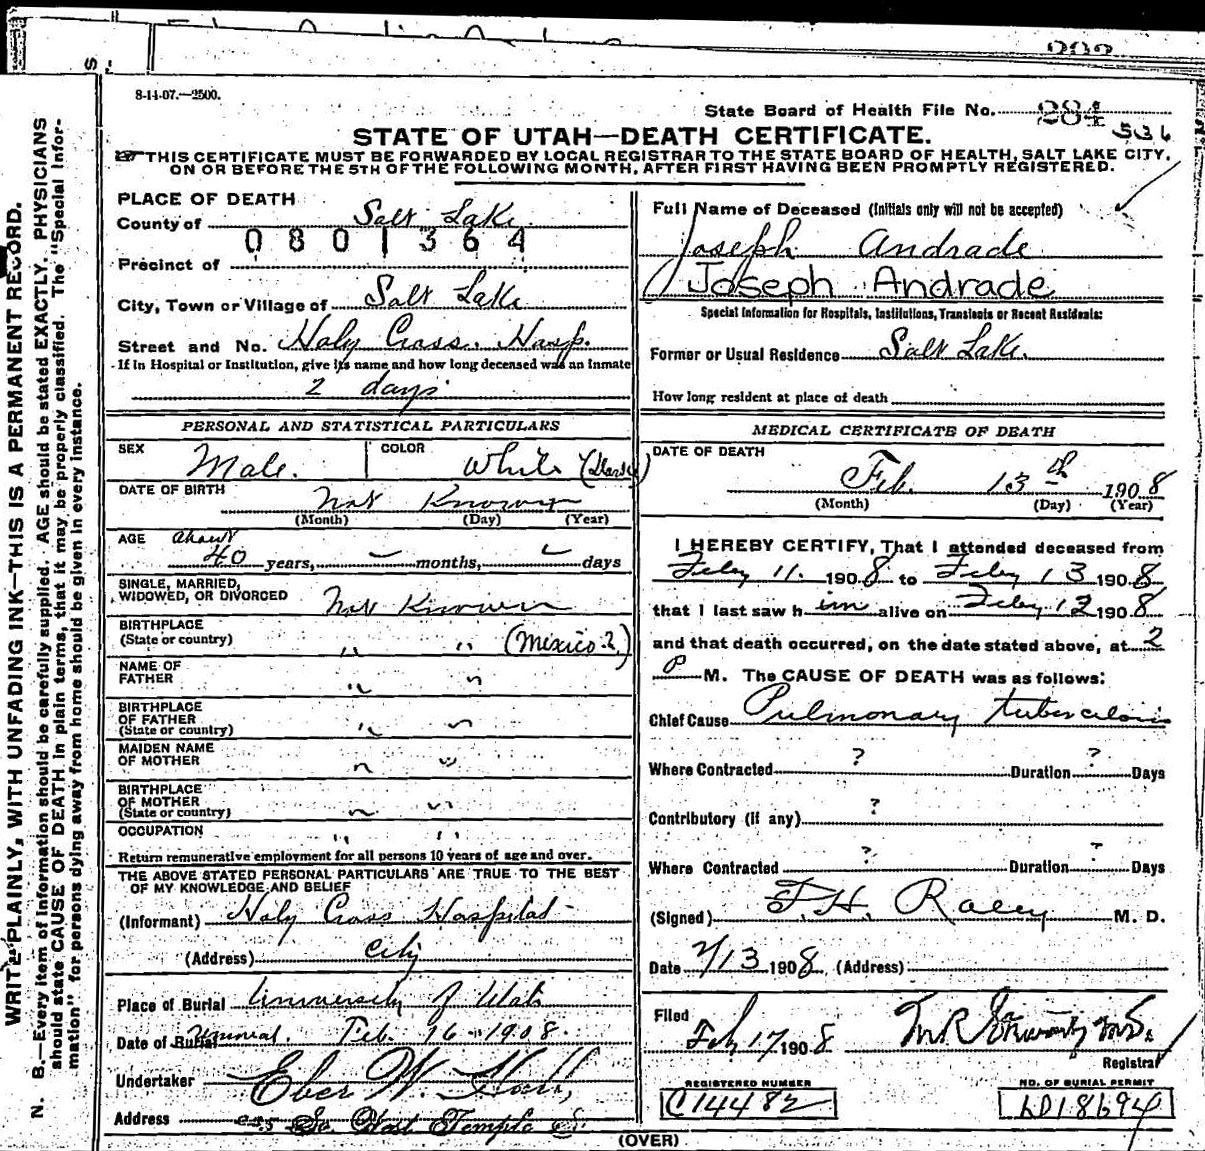 8-14-07.—2500.
State Board of Health File No. 284
536
STATE OF UTAH—DEATH CERTIFICATE.
THIS CERTIFICATE MUST BE FORWARDED BY LOCAL REGISTRAR TO THE STATE BOARD OF HEALTH, SALT LAKE CITY,
ON OR BEFORE THE 5TH OF THE FOLLOWING MONTH, AFTER FIRST HAVING BEEN PROMPTLY REGISTERED.
PLACE OF DEATH
County of Salt Lake
0801364
Precinct of
City, Town or Village of Salt Lake
Street and No. Holy Cross. Hosp.
If in Hospital or Institution, give its name and how long deceased was an Inmate
2 days
Full Name of Deceased (Initials only will not be accepted)
Joseph Andrade
Joseph Andrade
Special Information for Hospitals, Institutions, Transients or Recent Residents:
Former or Usual Residence Salt Lake.
How long resident at place of death
PERSONAL AND STATISTICAL PARTICULARS
SEX Male.
COLOR White
DATE OF BIRTH Not Known
(Month) (Day) (Year)
AGE about
40 years, — months, — days
SINGLE, MARRIED,
WIDOWED, OR DIVORCED Not Known
BIRTHPLACE
(State or country) " " (Mexico?)
NAME OF
FATHER " "
BIRTHPLACE
OF FATHER
(State or country) " "
MAIDEN NAME
OF MOTHER " "
BIRTHPLACE
OF MOTHER
(State or country) " "
OCCUPATION " "
Return remunerative employment for all persons 10 years of age and over.
THE ABOVE STATED PERSONAL PARTICULARS ARE TRUE TO THE BEST
OF MY KNOWLEDGE AND BELIEF
(Informant) Holy Cross Hospital
(Address) City
Place of Burial University of Utah
Date of Burial Feb. 16 - 1908.
Undertaker Eber W. Hall,
Address So West Temple S.
MEDICAL CERTIFICATE OF DEATH
DATE OF DEATH
Feb. 13th 1908
(Month) (Day) (Year)
I HEREBY CERTIFY, That I attended deceased from
Feby 11. 1908 to Feby 13 1908
that I last saw him alive on Feby 12 1908
and that death occurred, on the date stated above, at 2
P M. The CAUSE OF DEATH was as follows:
Chief Cause Pulmonary tuberculosis
Where Contracted ? Duration ? Days
Contributory (if any) ?
Where Contracted ? Duration ? Days
(Signed) F. H. Raley M. D.
Date 2/13 1908 (Address)
Filed
Feby 17 1908
Registrar
REGISTERED NUMBER
C14482
NO. OF BURIAL PERMIT
LD18694
(OVER)
WRITE PLAINLY, WITH UNFADING INK—THIS IS A PERMANENT RECORD.
N. B.—Every item of information should be carefully supplied. AGE should be stated EXACTLY. PHYSICIANS
should state CAUSE OF DEATH in plain terms, that it may be properly classified. The "Special Infor-
mation" for persons dying away from home should be given in every instance.